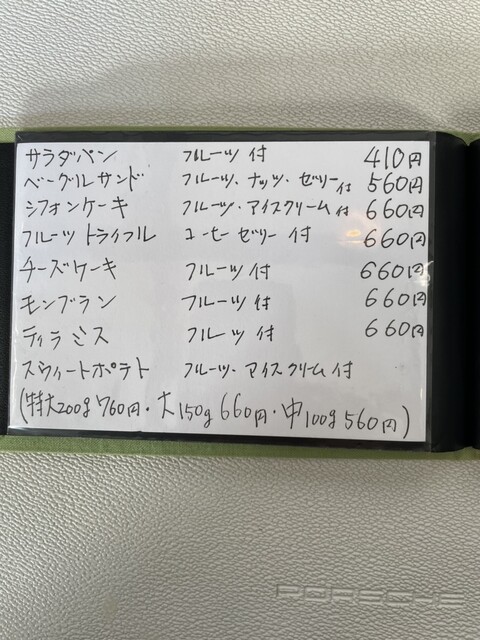 サラダパン フルーツ 付 410円
ベーグルサンド フルーツ・ナッツ・ゼリー付 560円
シフォンケーキ フルーツ・アイスクリーム付 660円
フルーツトライフル コーヒーゼリー付 660円
チーズケーキ フルーツ付 660円
モンブラン フルーツ付 660円
ティラミス フルーツ付 660円
スウィートポテト フルーツ・アイスクリーム付
(特大200g760円・大150g660円・中100g560円)
PORSCHE